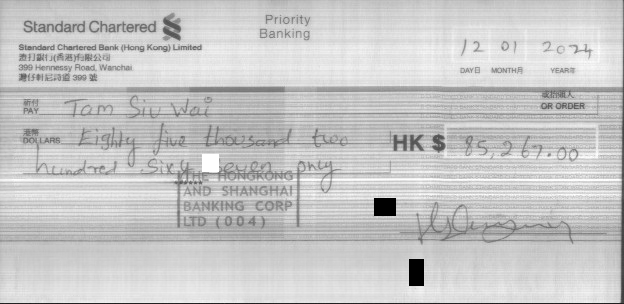 Standard Chartered
Priority
Banking
Standard Chartered Bank (Hong Kong) Limited
渣打銀行(香港)有限公司
399 Hennessy Road, Wanchai
灣仔軒尼詩道 399 號
12 01 2024
DAY日 MONTH月 YEAR年
祈付
PAY Tam Siu Wai
或持票人
OR ORDER
港幣
DOLLARS Eighty five thousand two
HK $ 85,267.00
hundred Sixty even only
THE HONGKONG
AND SHANGHAI
BANKING CORP
LTD (004)